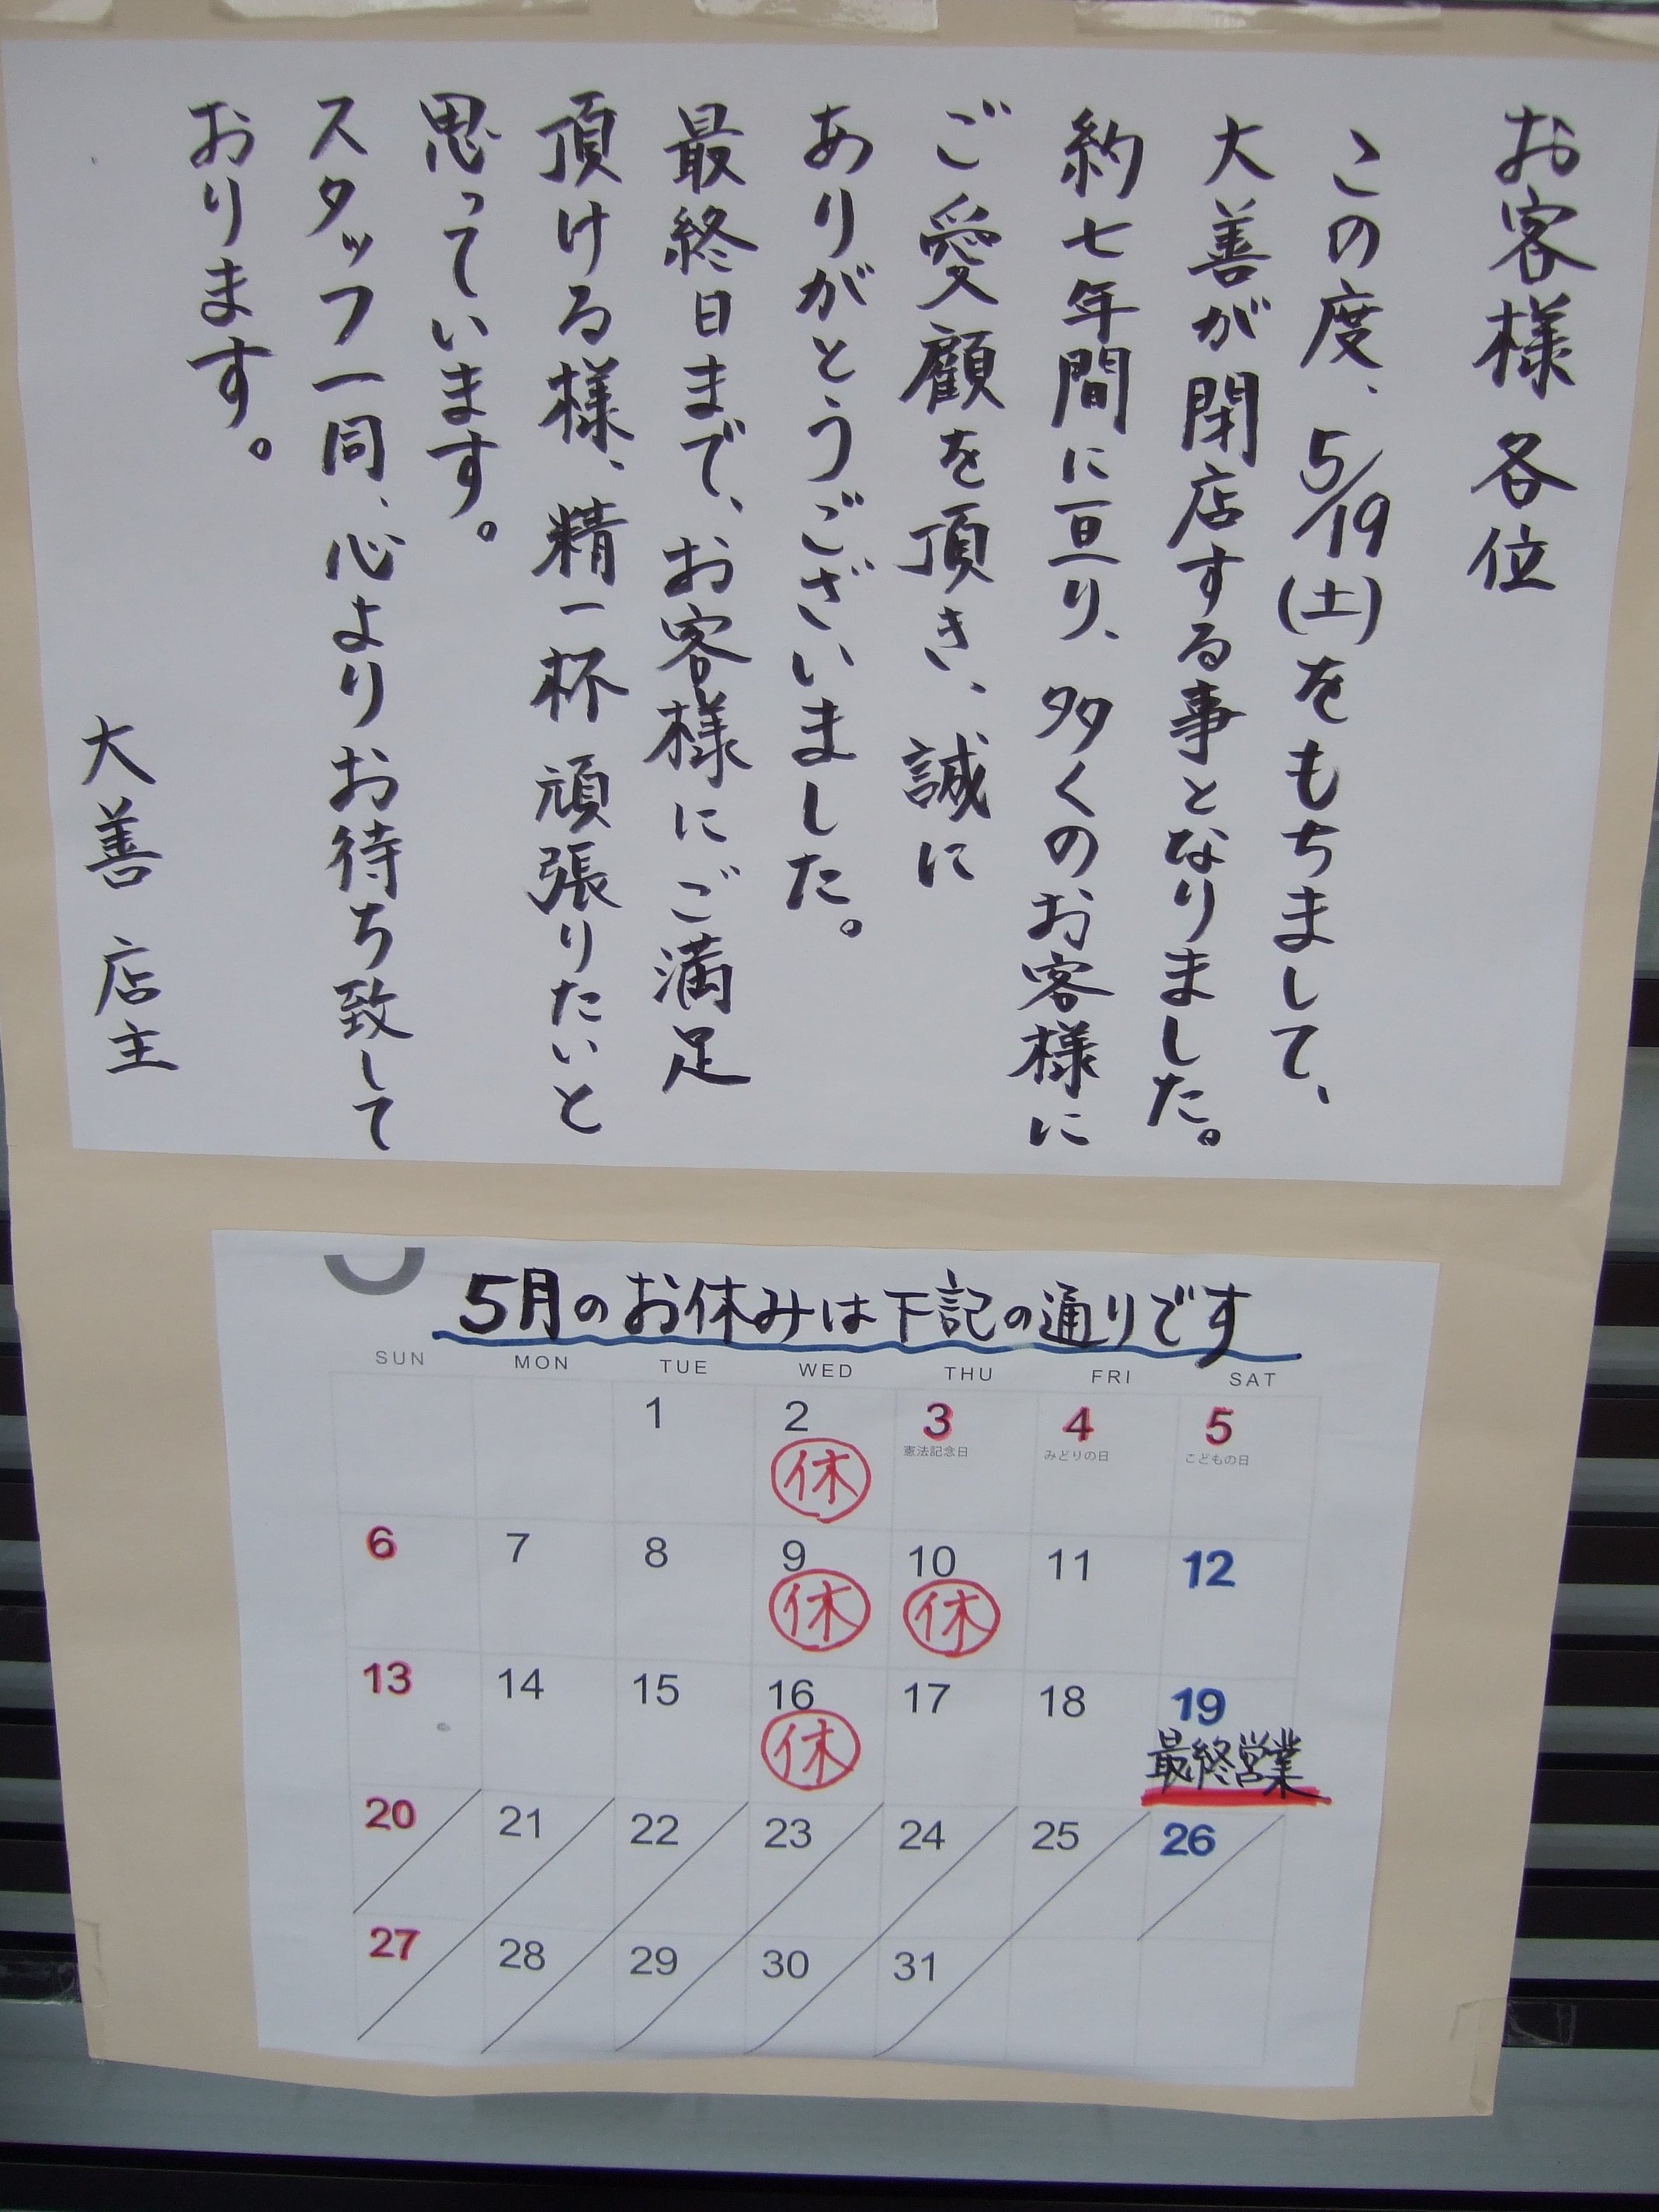 お客様各位
この度、5/19(土)をもちまして、
大善が閉店する事となりました。
約七年間に亘り、多くのお客様に
ご愛顧を頂き、誠に
ありがとうございました。
最終日まで、お客様にご満足
頂ける様、精一杯頑張りたいと
思っています。
スタッフ一同、心よりお待ち致して
おります。
大善 店主
5月のお休みは下記の通りです
SUN MON TUE WED THU FRI SAT
1 2 3 4 5
休 憲法記念日 みどりの日 こどもの日
6 7 8 9 10 11 12
休 休
13 14 15 16 17 18 19
休 最終営業
20 21 22 23 24 25 26
27 28 29 30 31